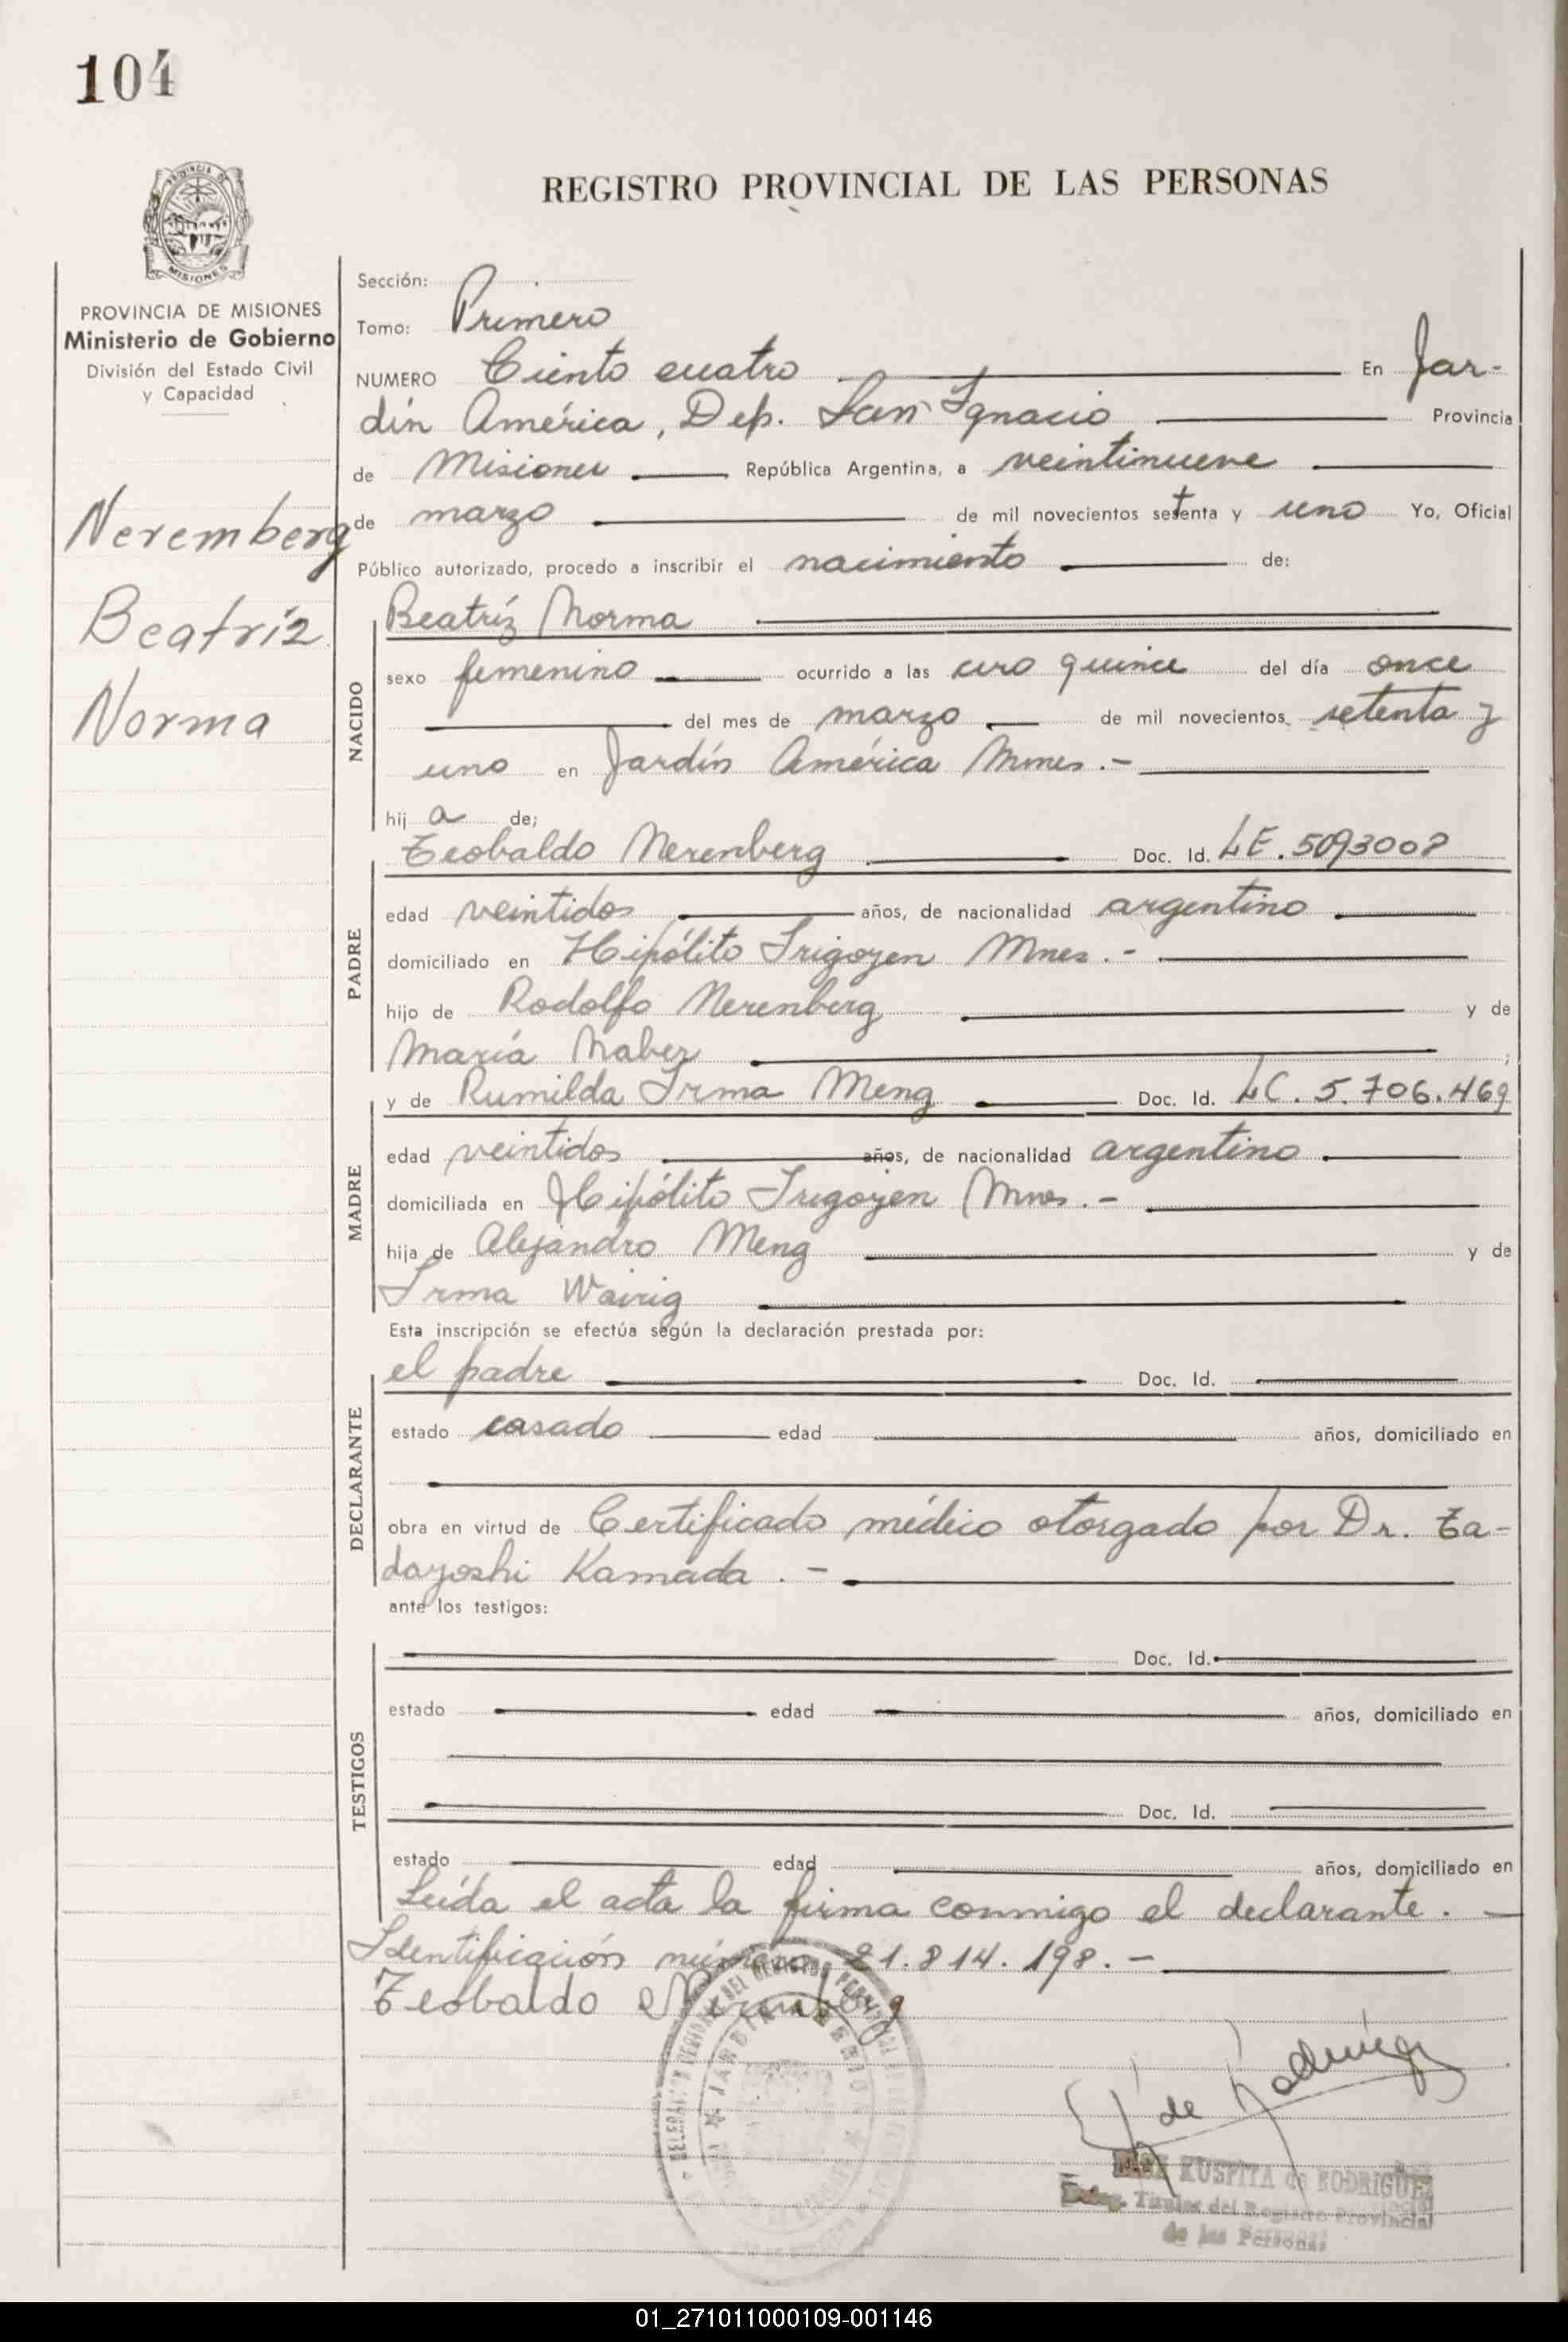 104
REGISTRO PROVINCIAL DE LAS PERSONAS
PROVINCIA DE MISIONES
Ministerio de Gobierno
División del Estado Civil
y Capacidad
Neremberg
Beatríz
Norma
Sección:
Tomo: Primero
NUMERO Ciento cuatro En Jar-
dín América, Dep. San Ignacio Provincia
de Misiones República Argentina, a veintinueve
de marzo de mil novecientos setenta y uno Yo, Oficial
Público autorizado, procedo a inscribir el nacimiento de:
NACIDO
Beatríz Norma
sexo femenino ocurrido a las cero quince del día once
del mes de marzo de mil novecientos setenta y
uno en Jardín América Mnes.-
hij a de;
PADRE
Teobaldo Nerenberg Doc. Id. LE. 5093008
edad veintidos años, de nacionalidad argentino
domiciliado en Hipólito Irigoyen Mnes.-
hijo de Rodolfo Nerenberg y de
María Naber ;
MADRE
y de Rumilda Irma Meng Doc. Id. LC. 5.706.469
edad veintidos años, de nacionalidad argentino
domiciliada en Hipólito Irigoyen Mnes.-
hija de Alejandro Meng y de
Irma Wairig
Esta inscripción se efectúa según la declaración prestada por:
DECLARANTE
el padre Doc. Id.
estado casado edad años, domiciliado en
obra en virtud de Certificado médico otorgado por Dr. Ta-
dayoshi Kamada.-
ante los testigos:
TESTIGOS
Doc. Id.
estado edad años, domiciliado en
Doc. Id.
estado edad años, domiciliado en
Leída el acta la firma conmigo el declarante.-
Identificación número 21.814.198.-
Teobaldo Nerenberg
de Rodríguez
KUSPITA de RODRIGUEZ
Deleg. Titular del Registro Provincial
de las Personas
01_271011000109-001146